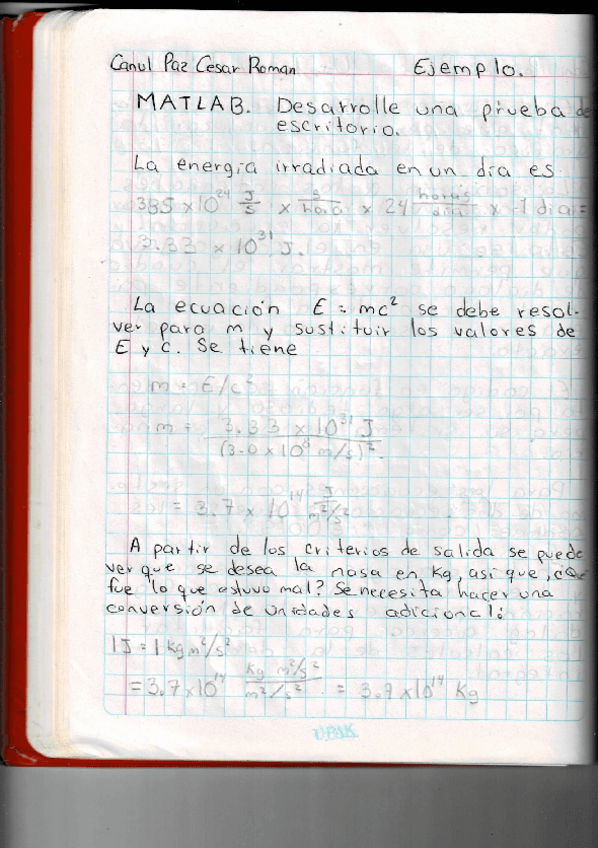 Canul Paz Cesar Roman Ejemplo.
MATLAB. Desarrolle una prueba de
escritorio.
La energia irradiada en un dia es
385 x 10^24 J/s x s/hora x 24 horas/dia x 1 dia =
3.33 x 10^31 J.
La ecuación E = mc² se debe resol-
ver para m y sustituir los valores de
E y c. Se tiene
m = E/c²
m = 3.33 x 10^31 J
(3.0 x 10^8 m/s)².
= 3.7 x 10^14 J
m²/s²
A partir de los criterios de salida se puede
ver que se desea la masa en Kg, asi que, ¿Que
fue lo que estuvo mal? Se necesita hacer una
conversión de unidades adicional:
1J = 1 kg m²/s²
= 3.7 x 10^14 Kg m²/s² / m²/s² = 3.7 x 10^14 Kg